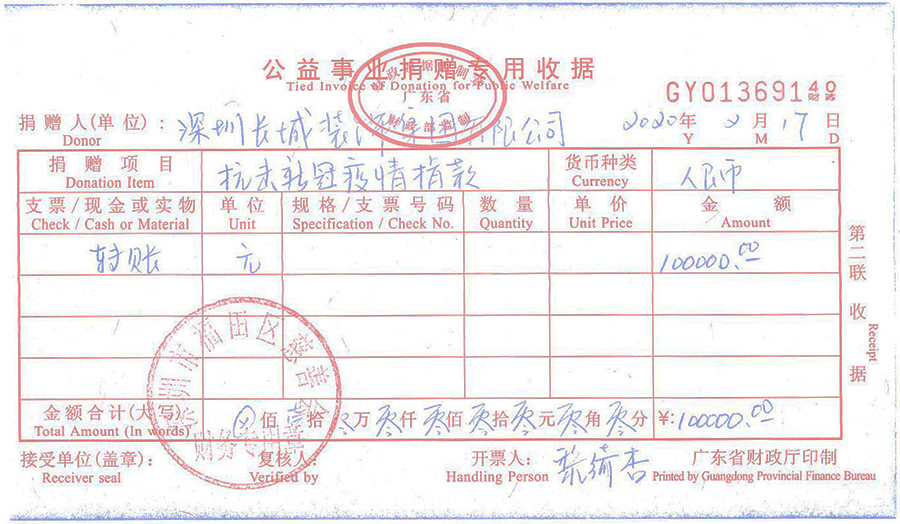 公益事业捐赠专用收据
Tied Invoice of Donation for Public Welfare
广东省
财政部监制
GY01369140
财政
捐赠人(单位)：深圳长城装饰集团有限公司 2020年 2月 17日
Donor Y M D
捐赠项目 抗击新冠疫情捐款 货币种类 人民币
Donation Item Currency
支票/现金或实物 单位 规格/支票号码 数量 单价 金额
Check / Cash or Material Unit Specification / Check No. Quantity Unit Price Amount
转账 元 100000.00
第二联 收据
Receipt
深圳市福田区慈善会
财务专用章
金额合计(大写) ⊗佰 拾 万零仟零佰零拾零元零角零分 ¥:100000.00
Total Amount (In words)
接受单位(盖章)： 复核人： 开票人： 广东省财政厅印制
Receiver seal Verified by Handling Person Printed by Guangdong Provincial Finance Bureau